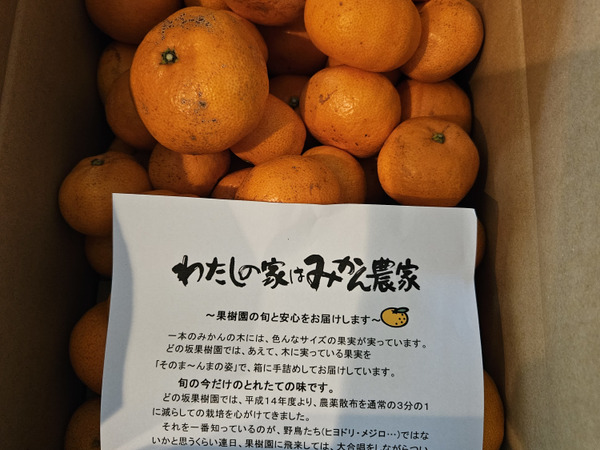 わたしの家はみかん農家
～果樹園の旬と安心をお届けします～
一本のみかんの木には、色んなサイズの果実が実っています。
どの坂果樹園では、あえて、木に実っている果実を
「そのま～んまの姿」で、箱に手詰めしてお届けしています。
旬の今だけのとれたての味です。
どの坂果樹園では、平成14年度より、農薬散布を通常の3分の1
に減らしての栽培を心がけてきました。
それを一番知っているのが、野鳥たち(ヒヨドリ・メジロ…)ではな
いかと思うくらい連日、果樹園に飛来しては、大合唱をしながらつい